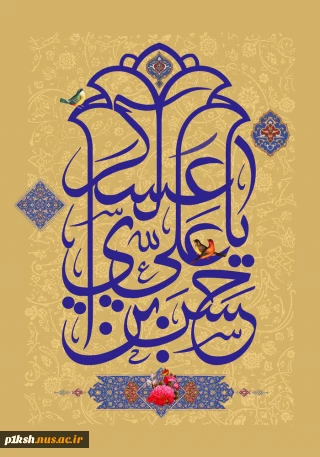 یا حسن بن علی العسکری
p1ksh.nus.ac.ir